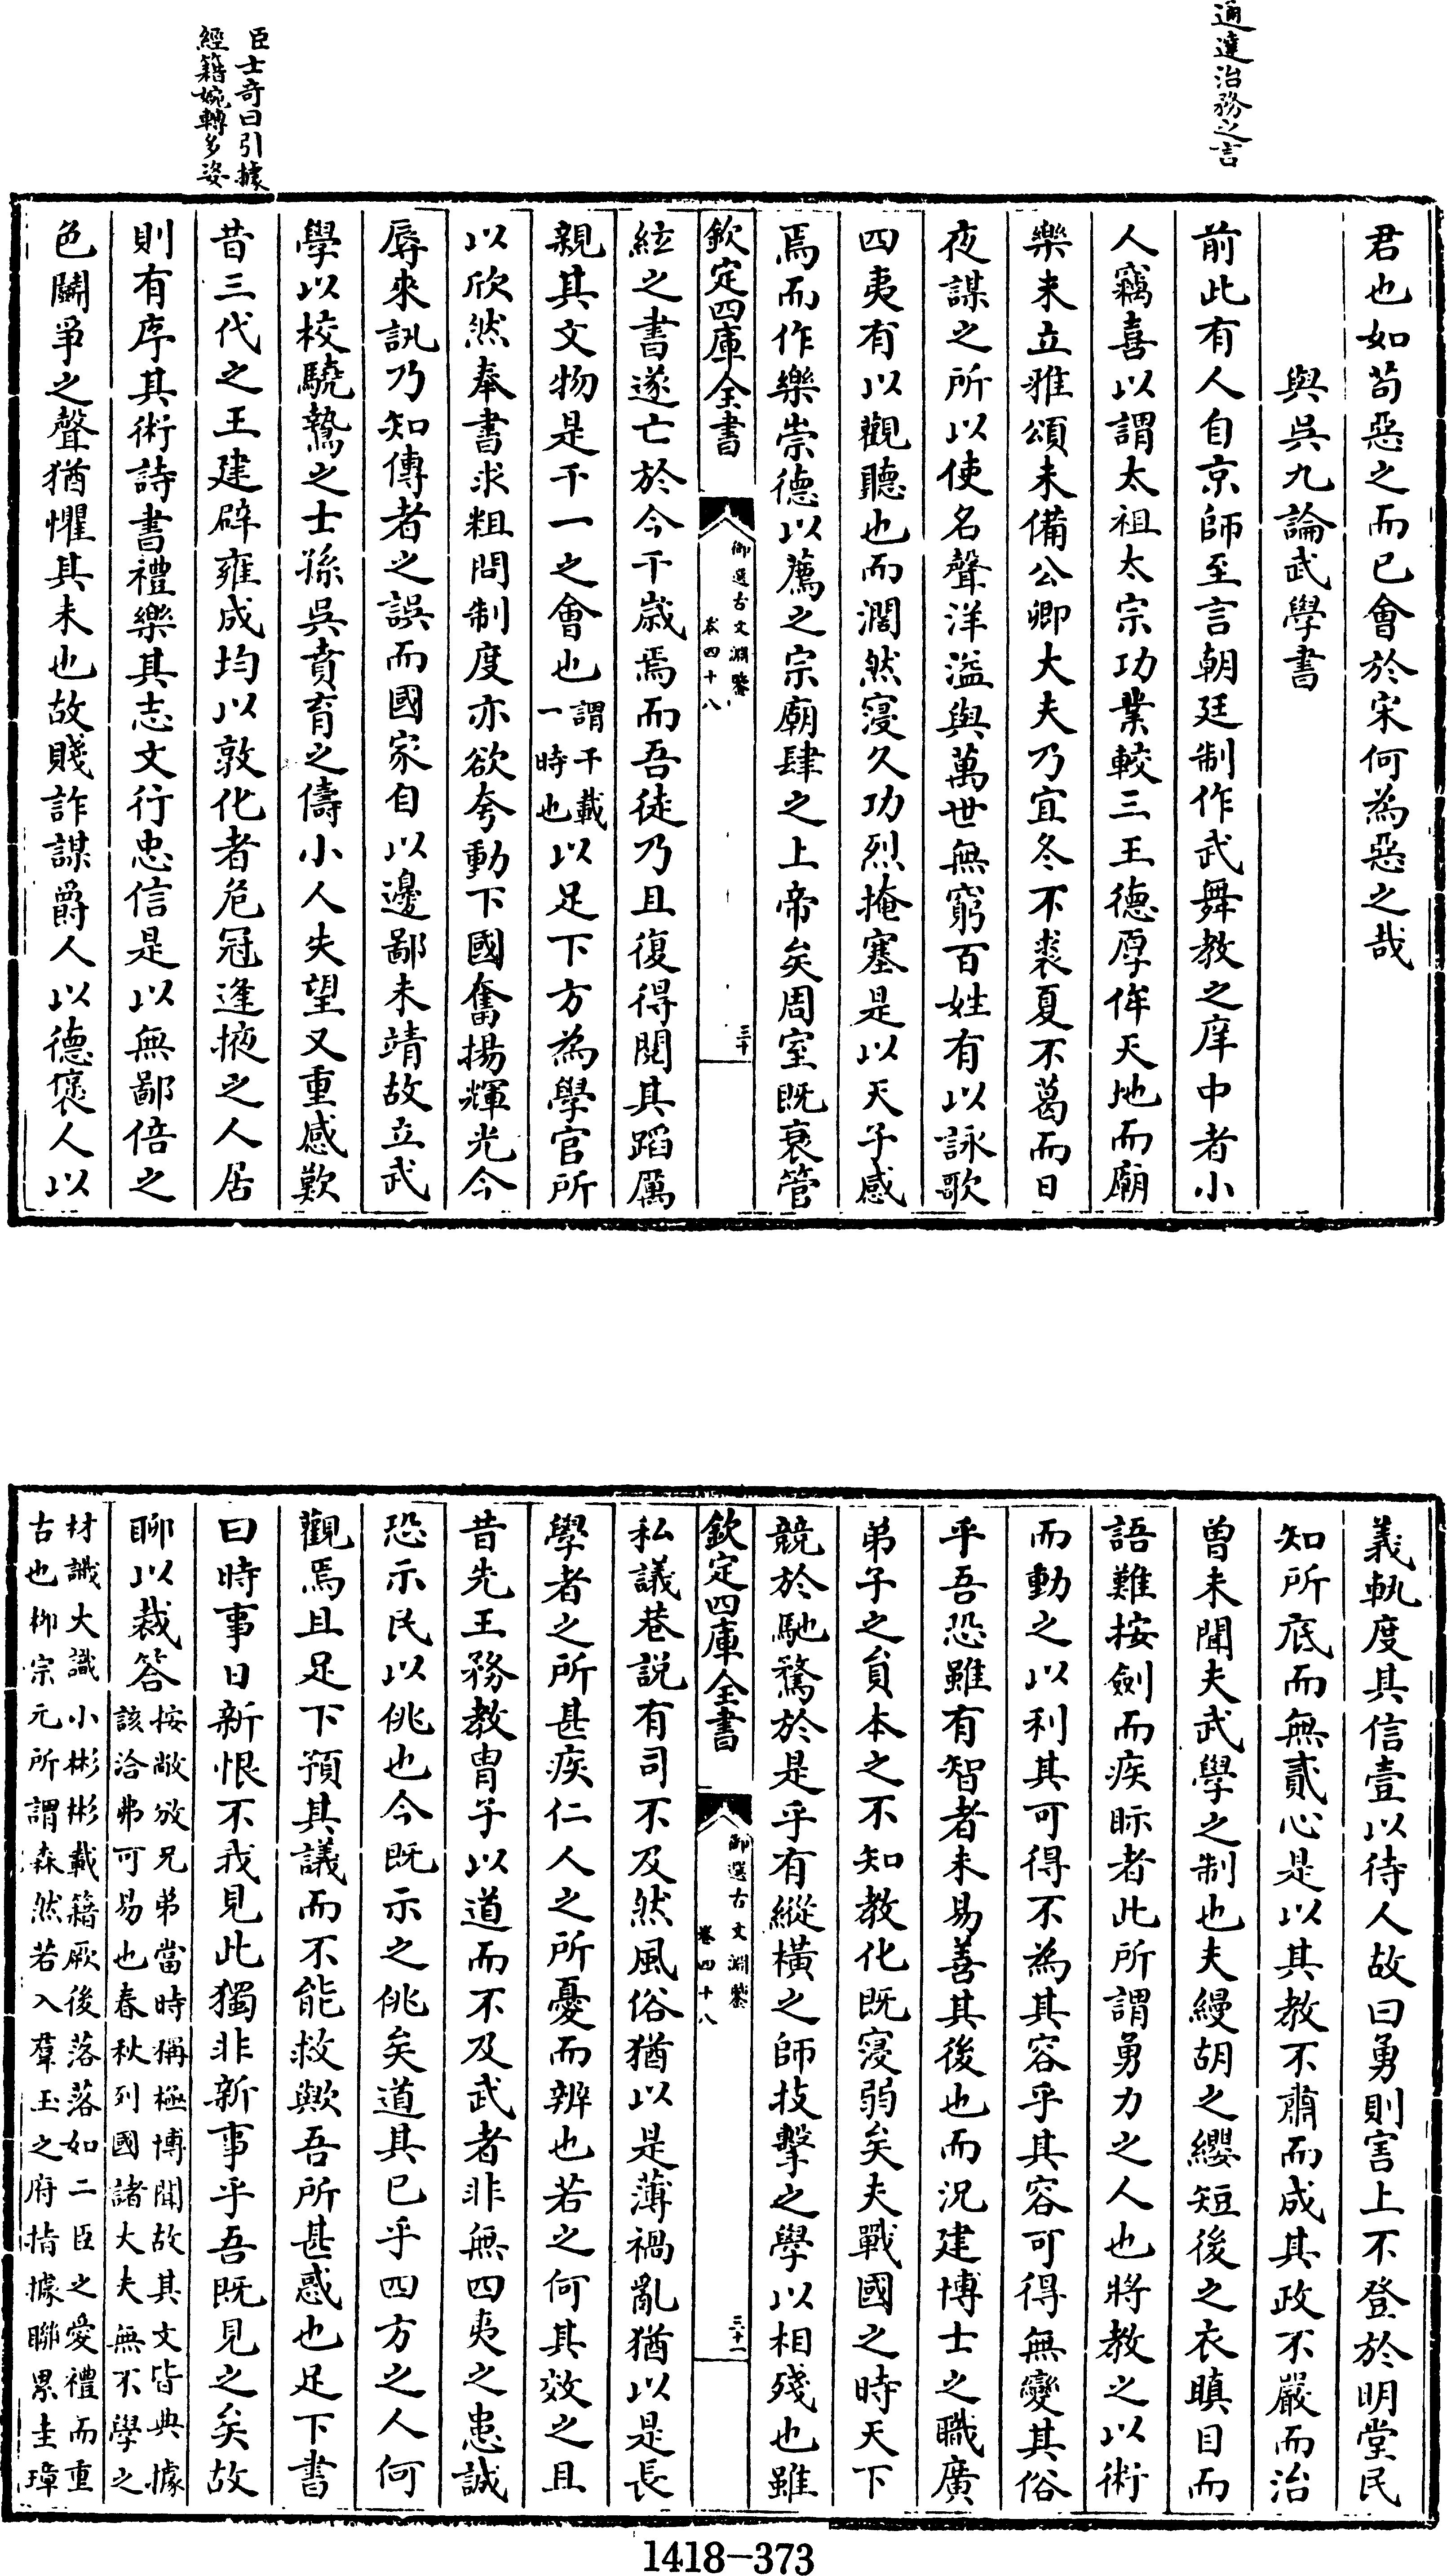 通達治務之言
臣士奇曰引據
經籍婉轉多姿
君也如苟惡之而已會於宋何為惡之哉
與吳九論武學書
前此有人自京師至言朝廷制作武舞教之庠中者小
人竊喜以謂太祖太宗功業較三王德厚侔天地而廟
樂未立雅頌未備公卿大夫乃宜冬不裘夏不葛而日
夜謀之所以使名聲洋溢與萬世無窮百姓有以詠歌
四夷有以觀聽也而濶然寖久功烈掩塞是以天子感
焉而作樂崇德以薦之宗廟肆之上帝矣周室既衰管
欽定四庫全書
御選古文淵鑒
卷四十八
三十
絃之書遂亡於今千歲焉而吾徒乃且復得閱其蹈厲
親其文物是千一之會也謂千載一時也以足下方為學官所
以欣然奉書求粗問制度亦欲夸動下國奮揚輝光今
辱來訊乃知傳者之誤而國家自以邊鄙未靖故立武
學以校驍騺之士孫吳賁育之儔小人失望又重感歎
昔三代之王建辟雍成均以敦化者危冠逢掖之人居
則有序其術詩書禮樂其志文行忠信是以無鄙倍之
色鬬爭之聲猶懼其未也故賤詐謀爵人以德褒人以
義軌度其信壹以待人故曰勇則害上不登於明堂民
知所底而無貳心是以其教不肅而成其政不嚴而治
曾未聞夫武學之制也夫縵胡之纓短後之衣瞋目而
語難按劍而疾眎者此所謂勇力之人也將教之以術
而動之以利其可得不為其容乎其容可得無變其俗
乎吾恐雖有智者未易善其後也而況建博士之職廣
弟子之貟本之不知教化既寖弱矣夫戰國之時天下
競於馳騖於是乎有縱橫之師技擊之學以相殘也雖
欽定四庫全書
御選古文淵鑒
卷四十八
三十一
私議巷說有司不及然風俗猶以是薄禍亂猶以是長
學者之所甚疾仁人之所憂而辨也若之何其效之且
昔先王務教胄子以道而不及武者非無四夷之患誠
恐示民以佻也今既示之佻矣道其已乎四方之人何
觀焉且足下預其議而不能救歟吾所甚惑也足下書
曰時事日新恨不我見此獨非新事乎吾既見之矣故
聊以裁答按敞攽兄弟當時稱極博聞故其文皆典據
該洽弗可易也春秋列國諸大夫無不學之
材識大識小彬彬載籍厥後落落如二臣之愛禮而重
古也柳宗元所謂森然若入羣玉之府指據聯累圭璋
1418-373